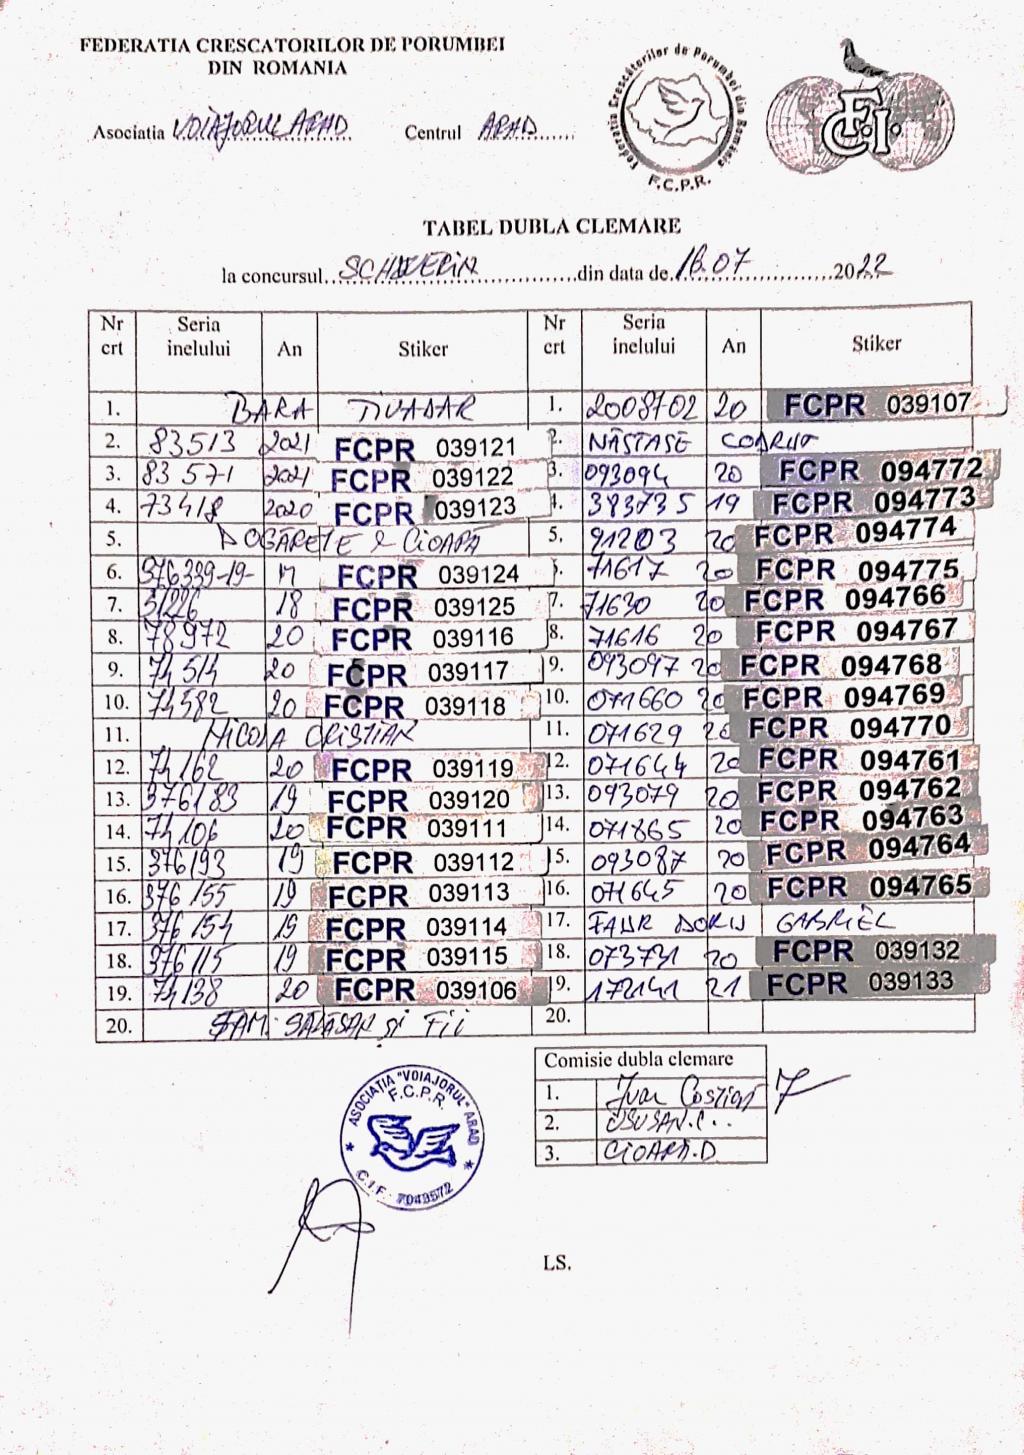 FEDERATIA CRESCATORILOR DE PORUMBEI
DIN ROMANIA
Asociatia VOIAJORUL ARAD Centrul ARAD
Federatia Crescătorilor de Porumbei din Romania
F.C.P.R.
F.C.I.
TABEL DUBLA CLEMARE
la concursul SCHWERIN din data de 16.07 2022
Nr crt Seria inelului An Stiker Nr crt Seria inelului An Stiker
1. BARA TIVADAR 1. 2008702 20 FCPR 039107
2. 83513 2021 FCPR 039121 2. NĂSTASE CODRUT
3. 83571 2021 FCPR 039122 3. 093094 20 FCPR 094772
4. 73418 2020 FCPR 039123 4. 383735 19 FCPR 094773
5. DOGĂRETE & CIOAPĂ 5. 91203 20 FCPR 094774
6. 376339-19- M FCPR 039124 71617 20 FCPR 094775
7. 51226 18 FCPR 039125 7. 71630 20 FCPR 094766
8. 78972 20 FCPR 039116 8. 71616 20 FCPR 094767
9. 74514 20 FCPR 039117 9. 093097 20 FCPR 094768
10. 74582 20 FCPR 039118 10. 071660 20 FCPR 094769
11. NICOLA CRISTIAN 11. 071629 20 FCPR 094770
12. 74162 20 FCPR 039119 12. 071644 20 FCPR 094761
13. 376183 19 FCPR 039120 13. 093079 20 FCPR 094762
14. 74106 20 FCPR 039111 14. 071865 20 FCPR 094763
15. 376193 19 FCPR 039112 15. 093087 20 FCPR 094764
16. 376155 19 FCPR 039113 16. 071645 20 FCPR 094765
17. 376154 19 FCPR 039114 17. FAUR DORU GABRIEL
18. 376115 19 FCPR 039115 18. 073731 20 FCPR 039132
19. 74138 20 FCPR 039106 19. 172141 21 FCPR 039133
20. FAM. SĂLĂSAN ȘI FII 20.
Comisie dubla clemare
1. Ivan Costian
2. USUSAN.C..
3. CIOAPA.D
ASOCIAȚIA "VOIAJORUL" ARAD
F.C.P.R.
C.I.F. 7048572
LS.